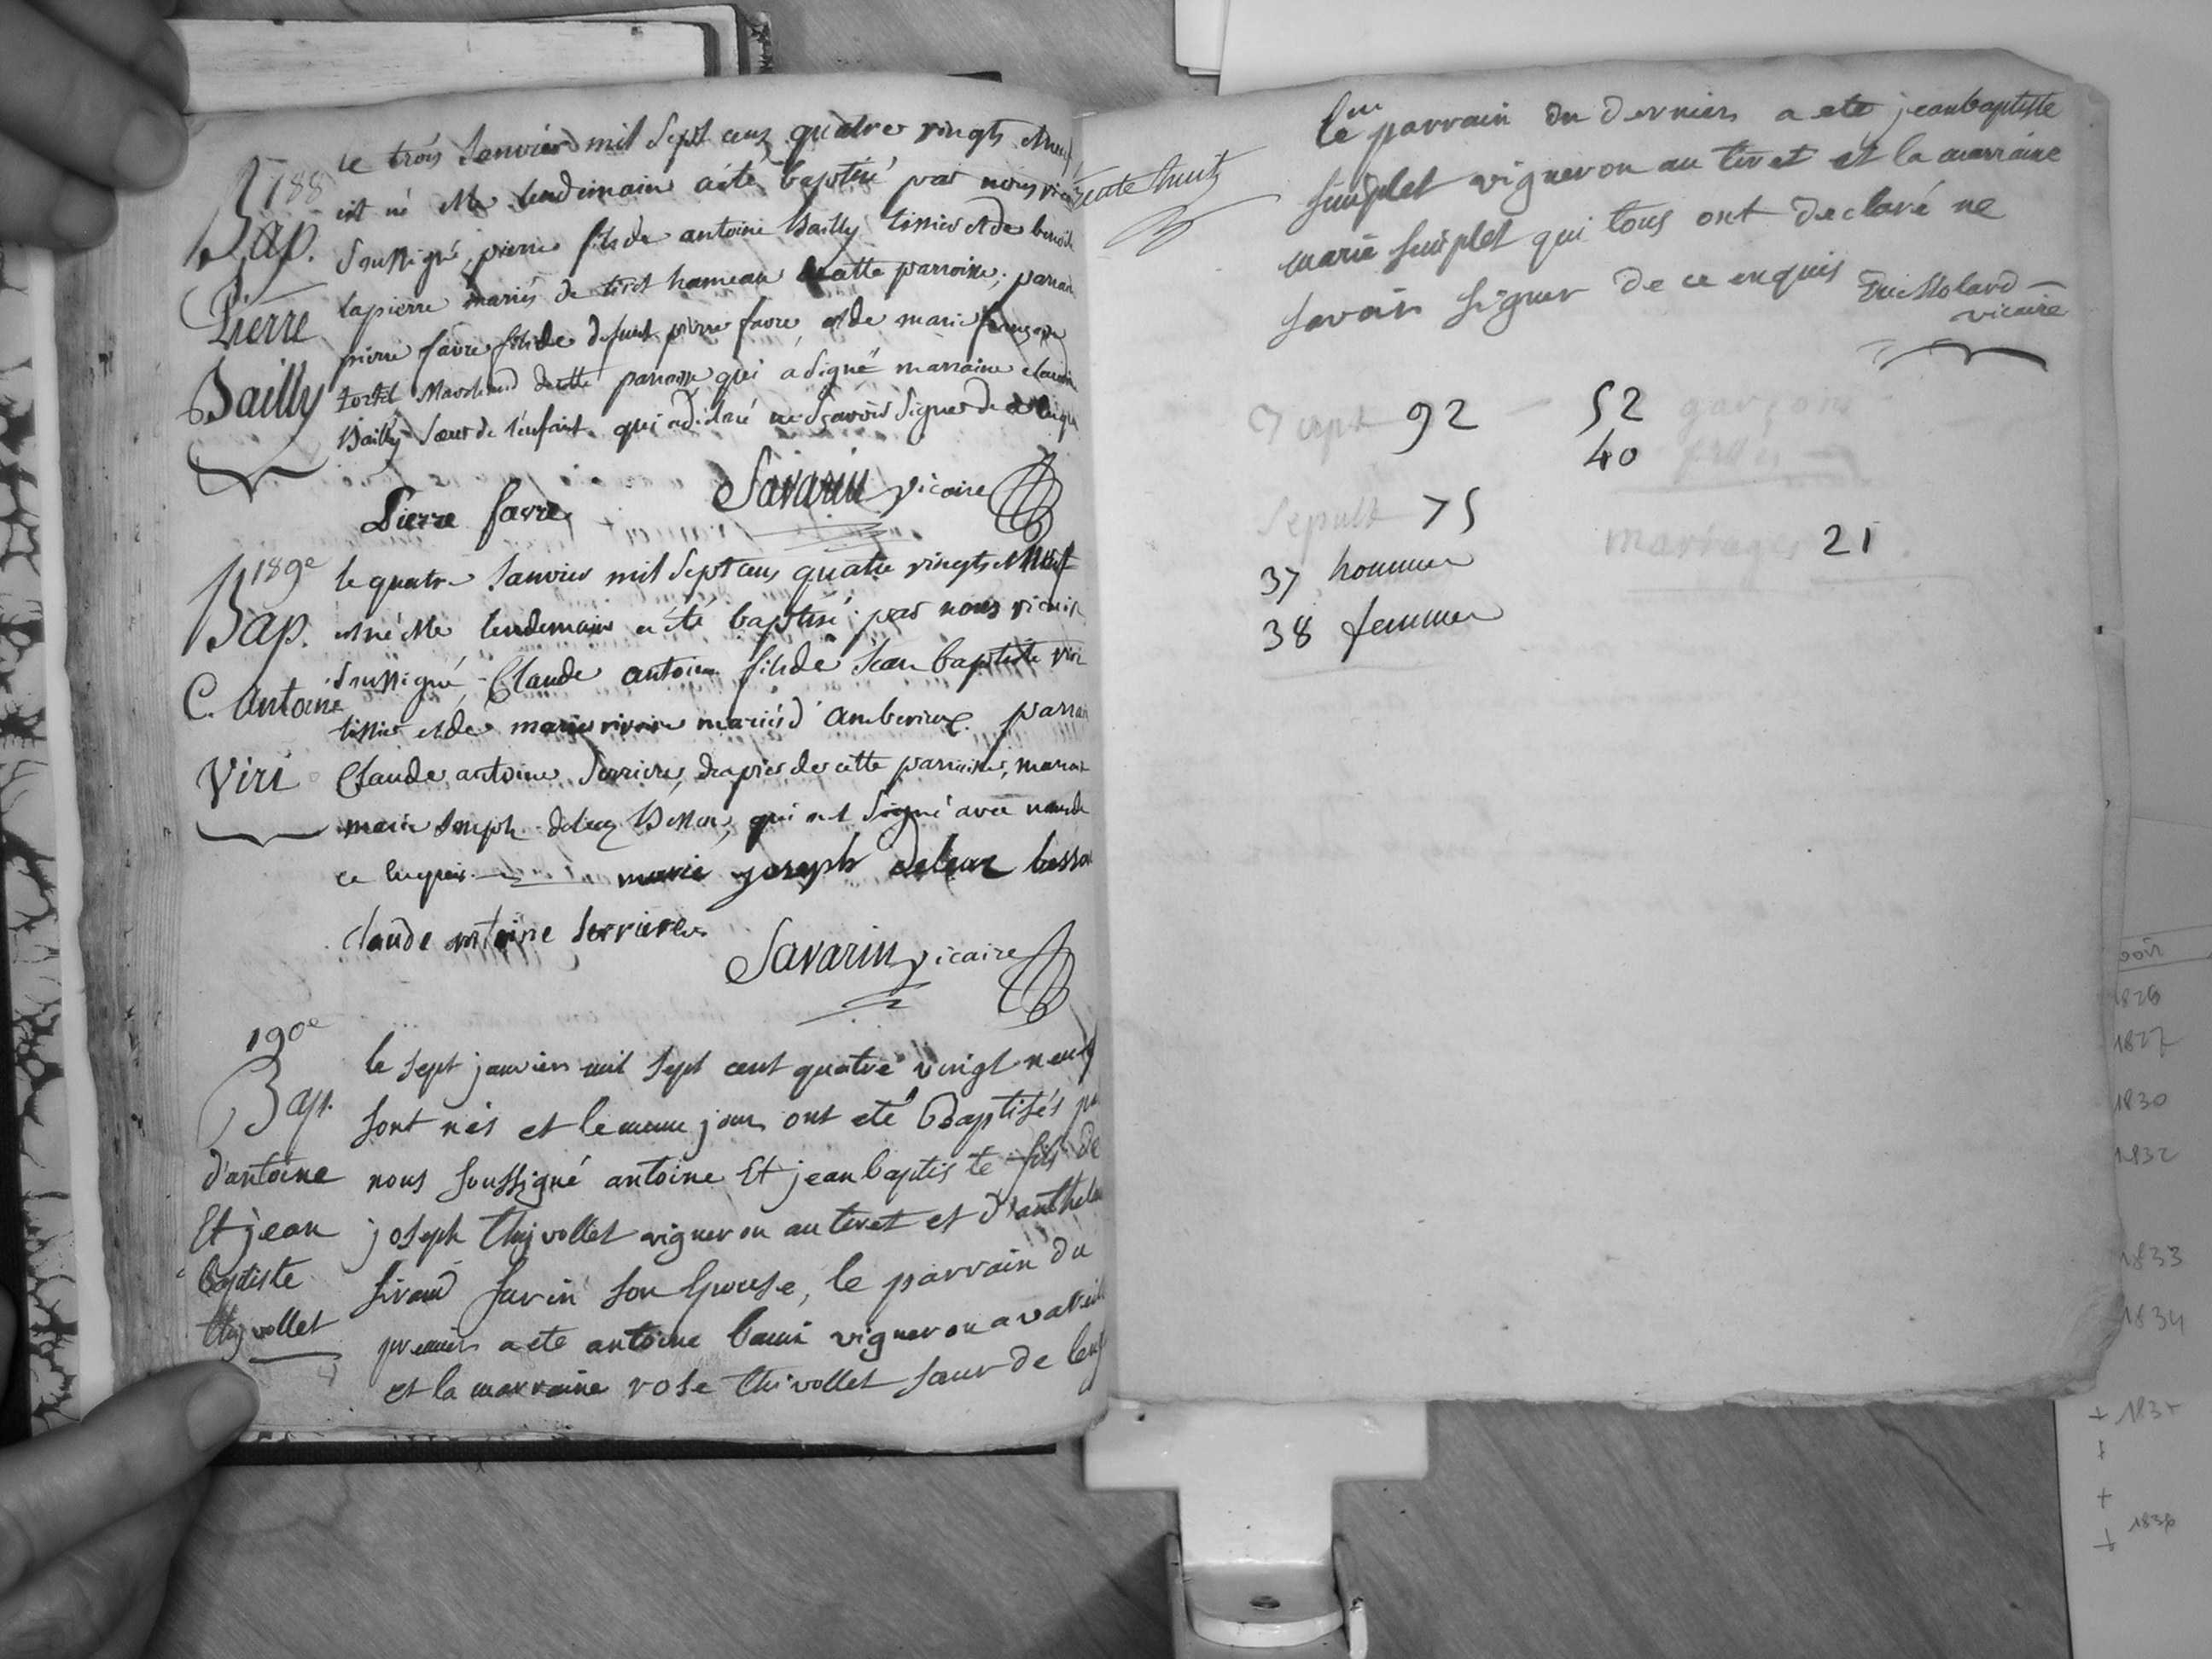 188
Bap.
Pierre
Bailly
le trois Janvier mil Sept cens quatre vingts et neuf
est né et le lendemain a été baptisé par nous vicaire
soussigné, pierre fils de antoine Bailly tissier et de benoite
lapierre mariés de tiret hameau de cette parroisse; parrain
pierre favre fils de defunt pierre favre, et de marie françoise
Marchand de cette parroisse qui a signé marraine claudine
Bailly Sœur de l'enfant qui a déclaré ne sçavoir signer de ce enquis
Pierre favre
Savarin vicaire
189e
Bap.
C. Antoine
Viri
le quatre Janvier mil Sept cens quatre vingts et neuf
est né et le lendemain a été baptisé par nous vicaire
soussigné, Claude antoine fils de Jean baptiste viri
tissier et de marie rivoire mariés d'amberieux. parrain
Claude antoine Serrieres, drapier de cette parroisse, marraine
marie Joseph deleaz Besson, qui ont signé avec nous de
ce enquis marie joseph deleaz besson
claude antoine Serrieres
Savarin vicaire
190e
Bap.
d'antoine
Et jean
baptiste
thyvollet
le sept janvier mil sept cent quatre vingt neuf
sont nés et le meme jour ont eté Baptisés par
nous soussigné antoine Et jean baptiste fils de
joseph thyvollet vigneron au tiret et d'anthelmette
sivand savin son Epouse, le parrain du
premier a ete antoine vigneron a vareille
et la marraine rose thivollet sœur de l'enf
le parrain du dernier a ete jean baptiste
simplet vigneron au tiret et la marraine
marie simplet qui tous ont declaré ne
savoir signer de ce enquis
vicaire
92 52 garçons
40
Sepult 75
37 hommes
38 femmes
mariages 21
1826
1827
1830
1832
1833
1834
+ 183
+
+
+ 1836